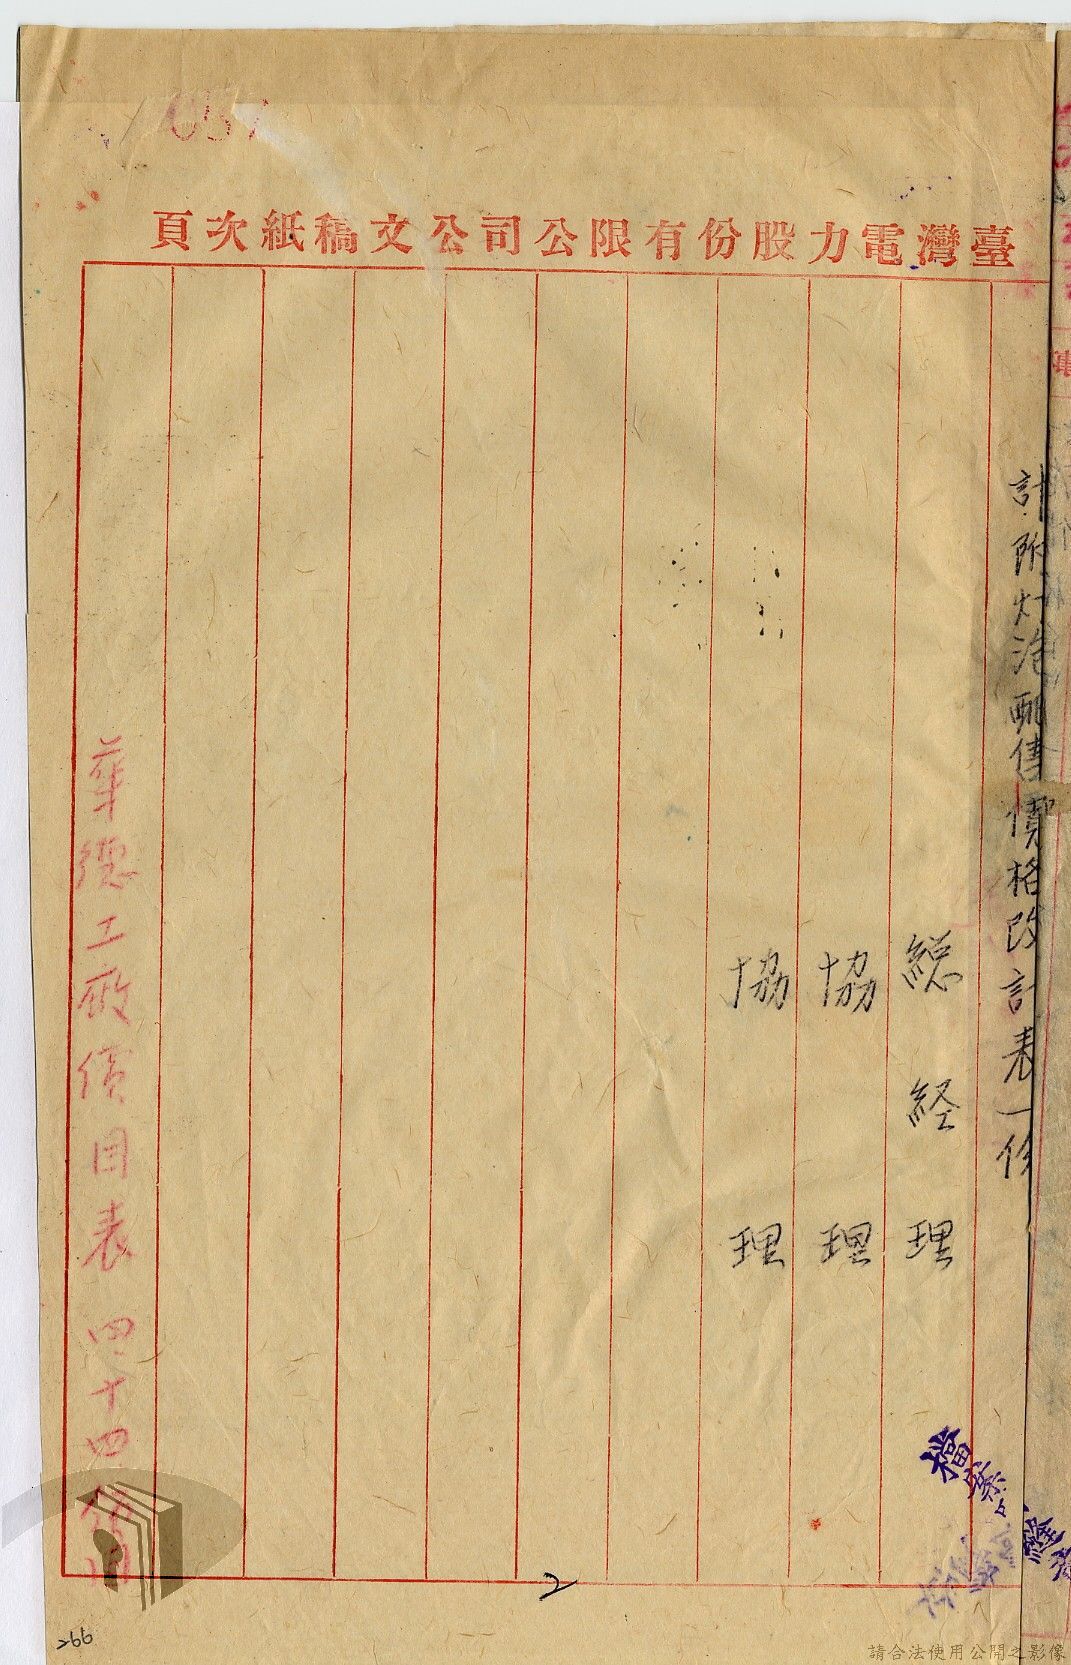 臺灣電力股份有限公司公文稿紙次頁
計附灯泡配售價格改訂表一份
総経理
協理
協理
華德工廠價目表 四十四
檔案
2
266
請合法使用公開之影像